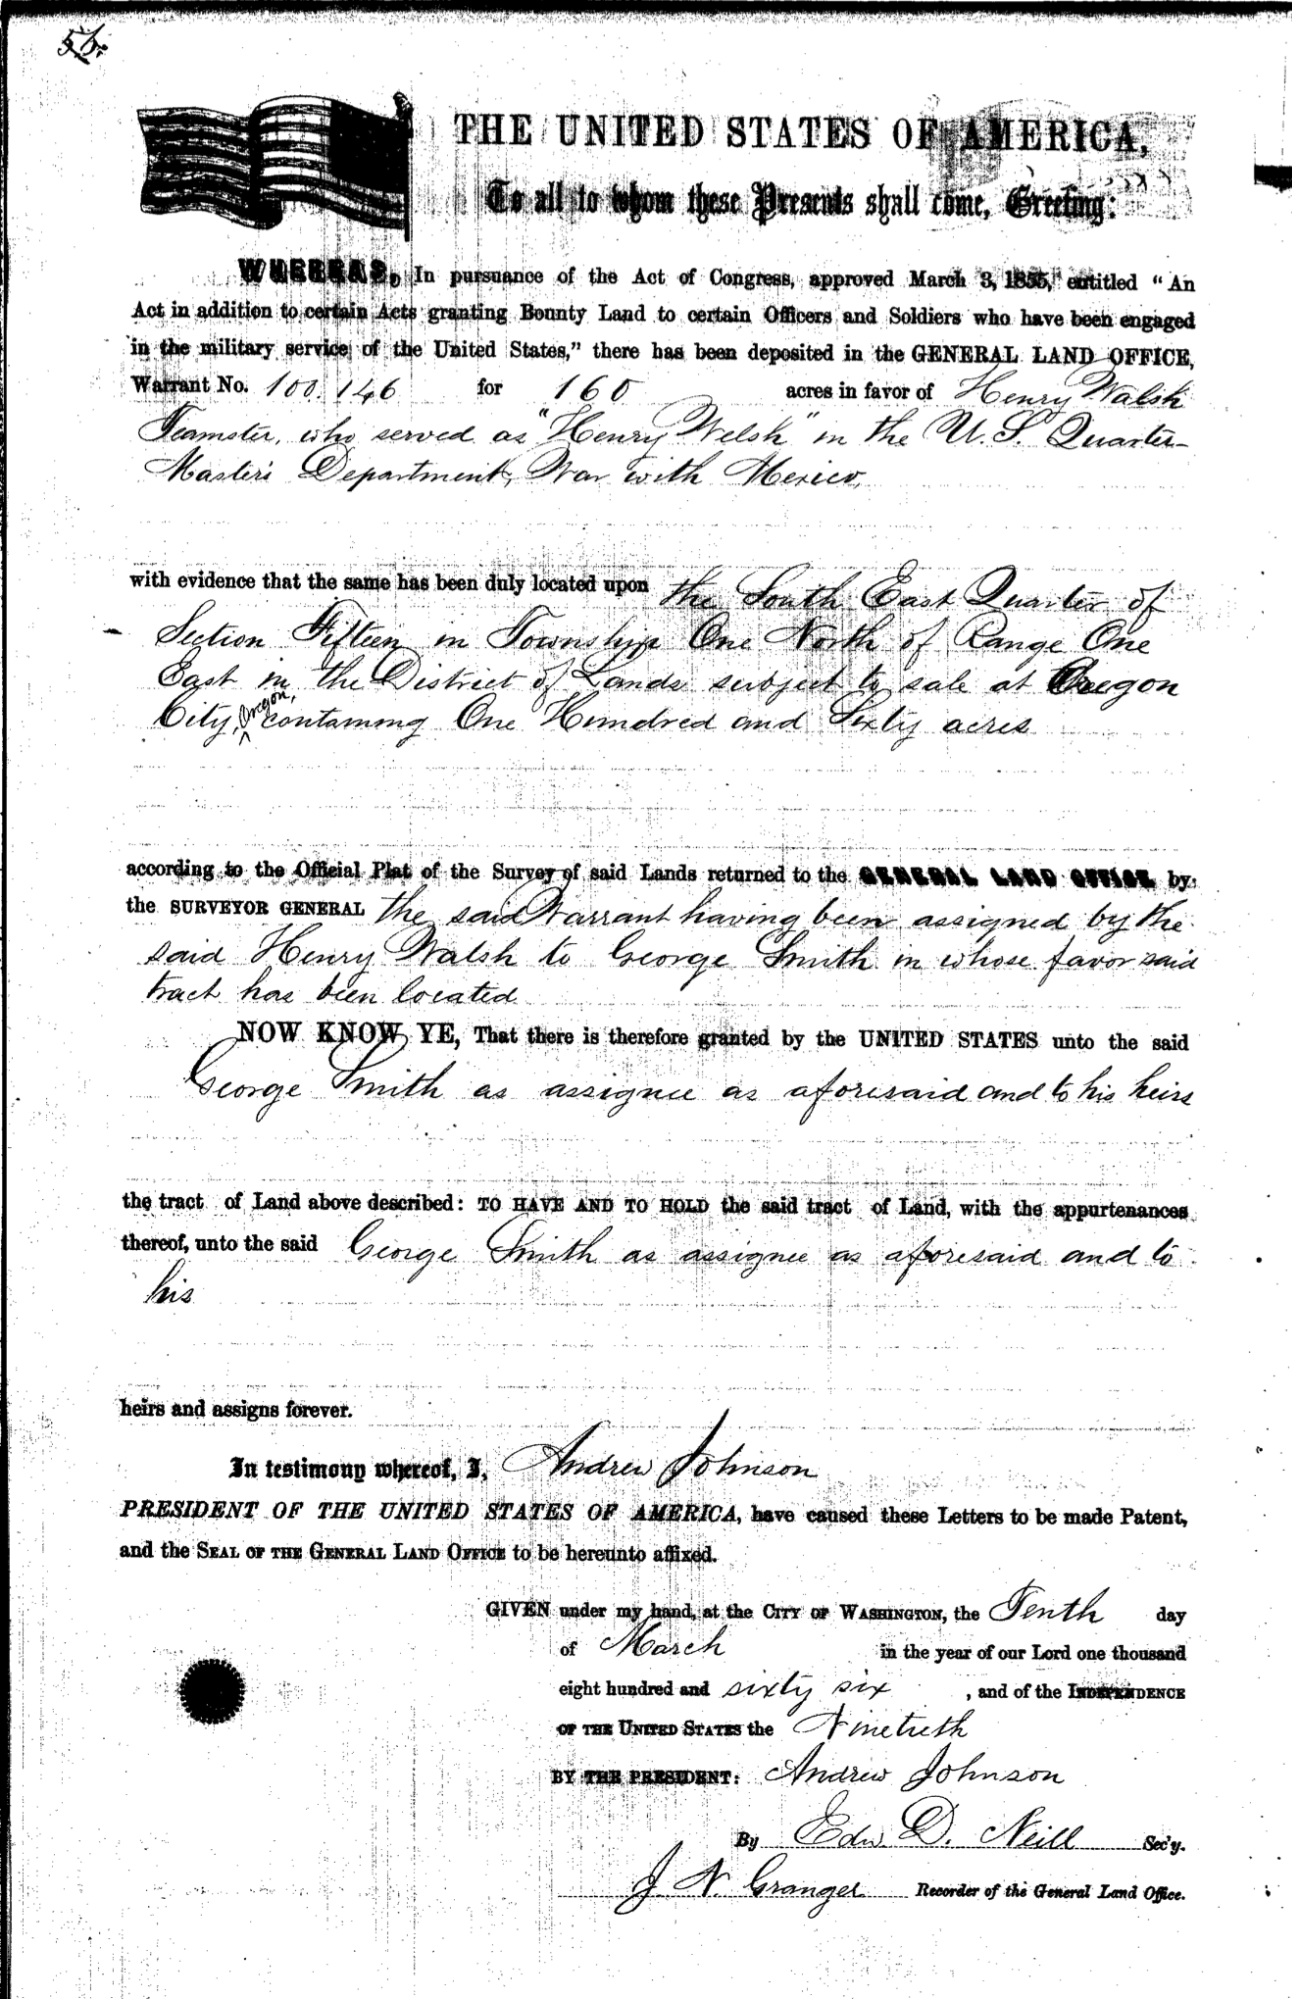 THE UNITED STATES OF AMERICA,
To all to whom these Presents shall come, Greeting:
WHEREAS, In pursuance of the Act of Congress, approved March 3, 1855, entitled "An
Act in addition to certain Acts granting Bounty Land to certain Officers and Soldiers who have been engaged
in the military service of the United States," there has been deposited in the GENERAL LAND OFFICE,
Warrant No. 100.146 for 160 acres in favor of Henry Walsh
Teamster, who served as "Henry Welsh" in the U.S. Quarter-
Master's Department, War with Mexico,
with evidence that the same has been duly located upon the South East Quarter of
Section Fifteen in Township One North of Range One
East in the District of Lands subject to sale at Oregon
City, Oregon, containing One Hundred and Sixty acres
according to the Official Plat of the Survey of said Lands returned to the GENERAL LAND OFFICE by
the SURVEYOR GENERAL the said Warrant having been assigned by the
said Henry Walsh to George Smith in whose favor said
tract has been located
NOW KNOW YE, That there is therefore granted by the UNITED STATES unto the said
George Smith as assignee as aforesaid and to his heirs
the tract of Land above described: TO HAVE AND TO HOLD the said tract of Land, with the appurtenances
thereof, unto the said George Smith as assignee as aforesaid and to
his
heirs and assigns forever.
In testimony whereof, I, Andrew Johnson
PRESIDENT OF THE UNITED STATES OF AMERICA, have caused these Letters to be made Patent,
and the SEAL OF THE GENERAL LAND OFFICE to be hereunto affixed.
GIVEN under my hand, at the CITY OF WASHINGTON, the Tenth day
of March in the year of our Lord one thousand
eight hundred and sixty six, and of the INDEPENDENCE
OF THE UNITED STATES the Ninetieth
BY THE PRESIDENT: Andrew Johnson
By Edw. D. Neill Sec'y.
J. N. Granger Recorder of the General Land Office.